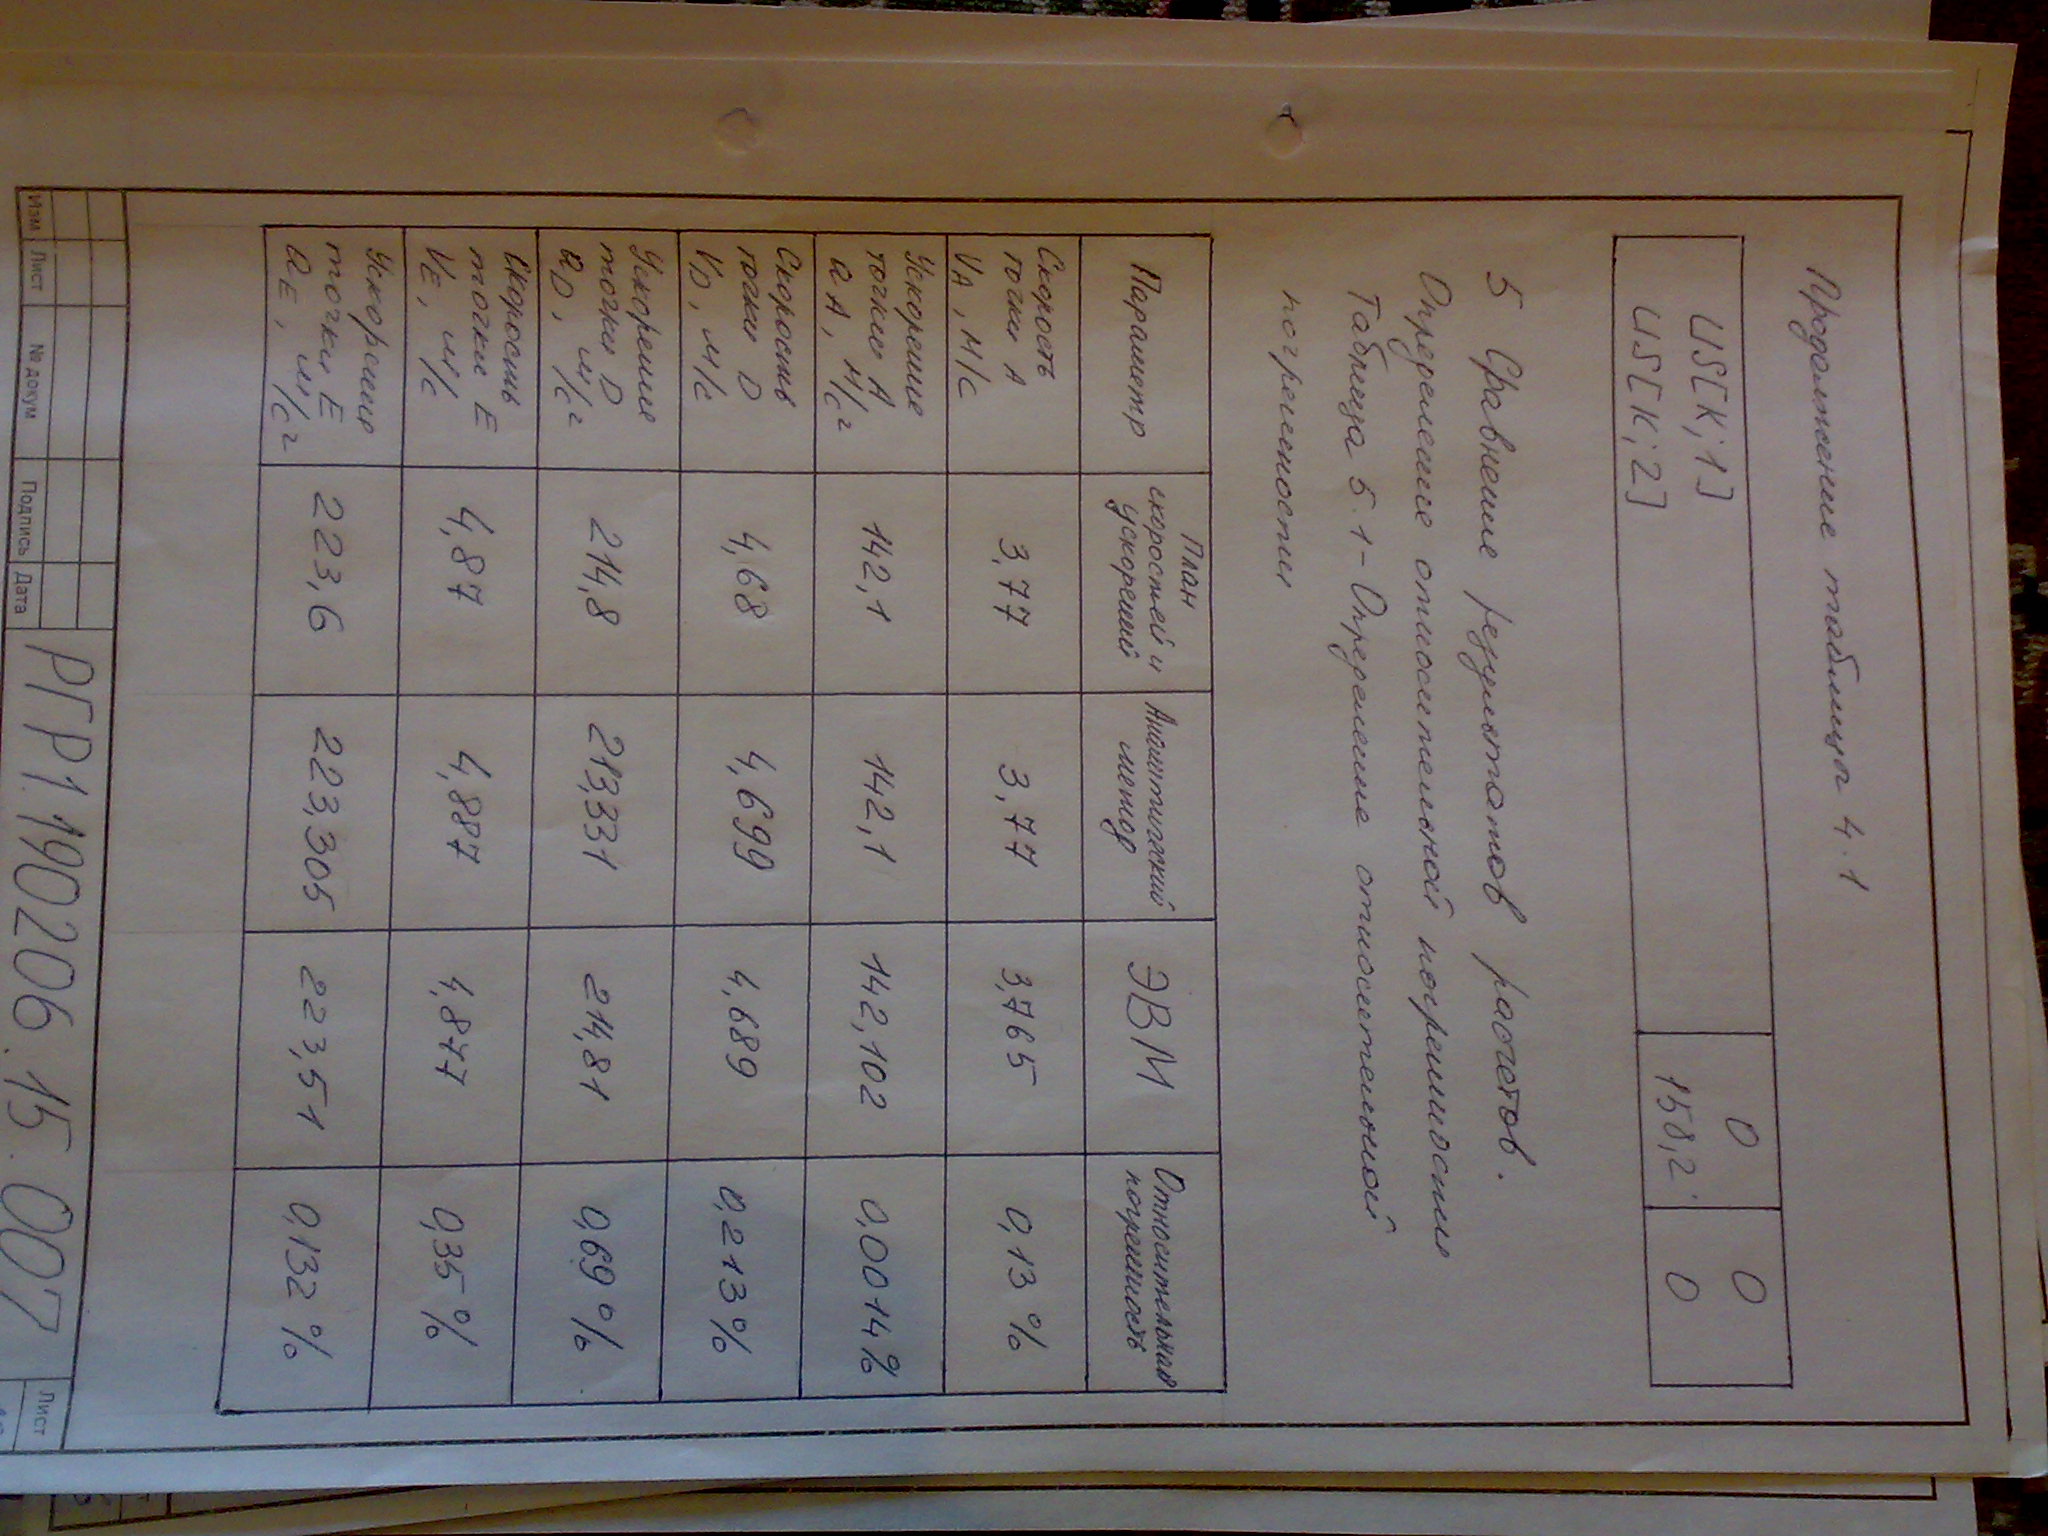 Продолжение таблица 4.1
US[K;1] 0 0
US[K;2] 158,2 0
5 Сравнение результатов расчетов.
Определение относительной погрешности
Таблица 5.1 - Определение относительной
погрешности
Параметр
План
скоростей и
ускорений
Аналитический
метод
ЭВМ
Относительная
погрешность
Скорость
точки A
VA, м/с
3,77
3,77
3,765
0,13%
Ускорение
точки A
aA, м/с2
142,1
142,1
142,102
0,0014%
Скорость
точки D
VD, м/с
4,68
4,699
4,689
0,213%
Ускорение
точки D
aD, м/с2
214,8
213,331
214,81
0,69%
Скорость
точки E
VE, м/с
4,87
4,887
4,877
0,35%
Ускорение
точки E
aE, м/с2
223,6
223,305
223,51
0,132%
Изм Лист № докум Подпись Дата
РГР.190206.15.007
Лист